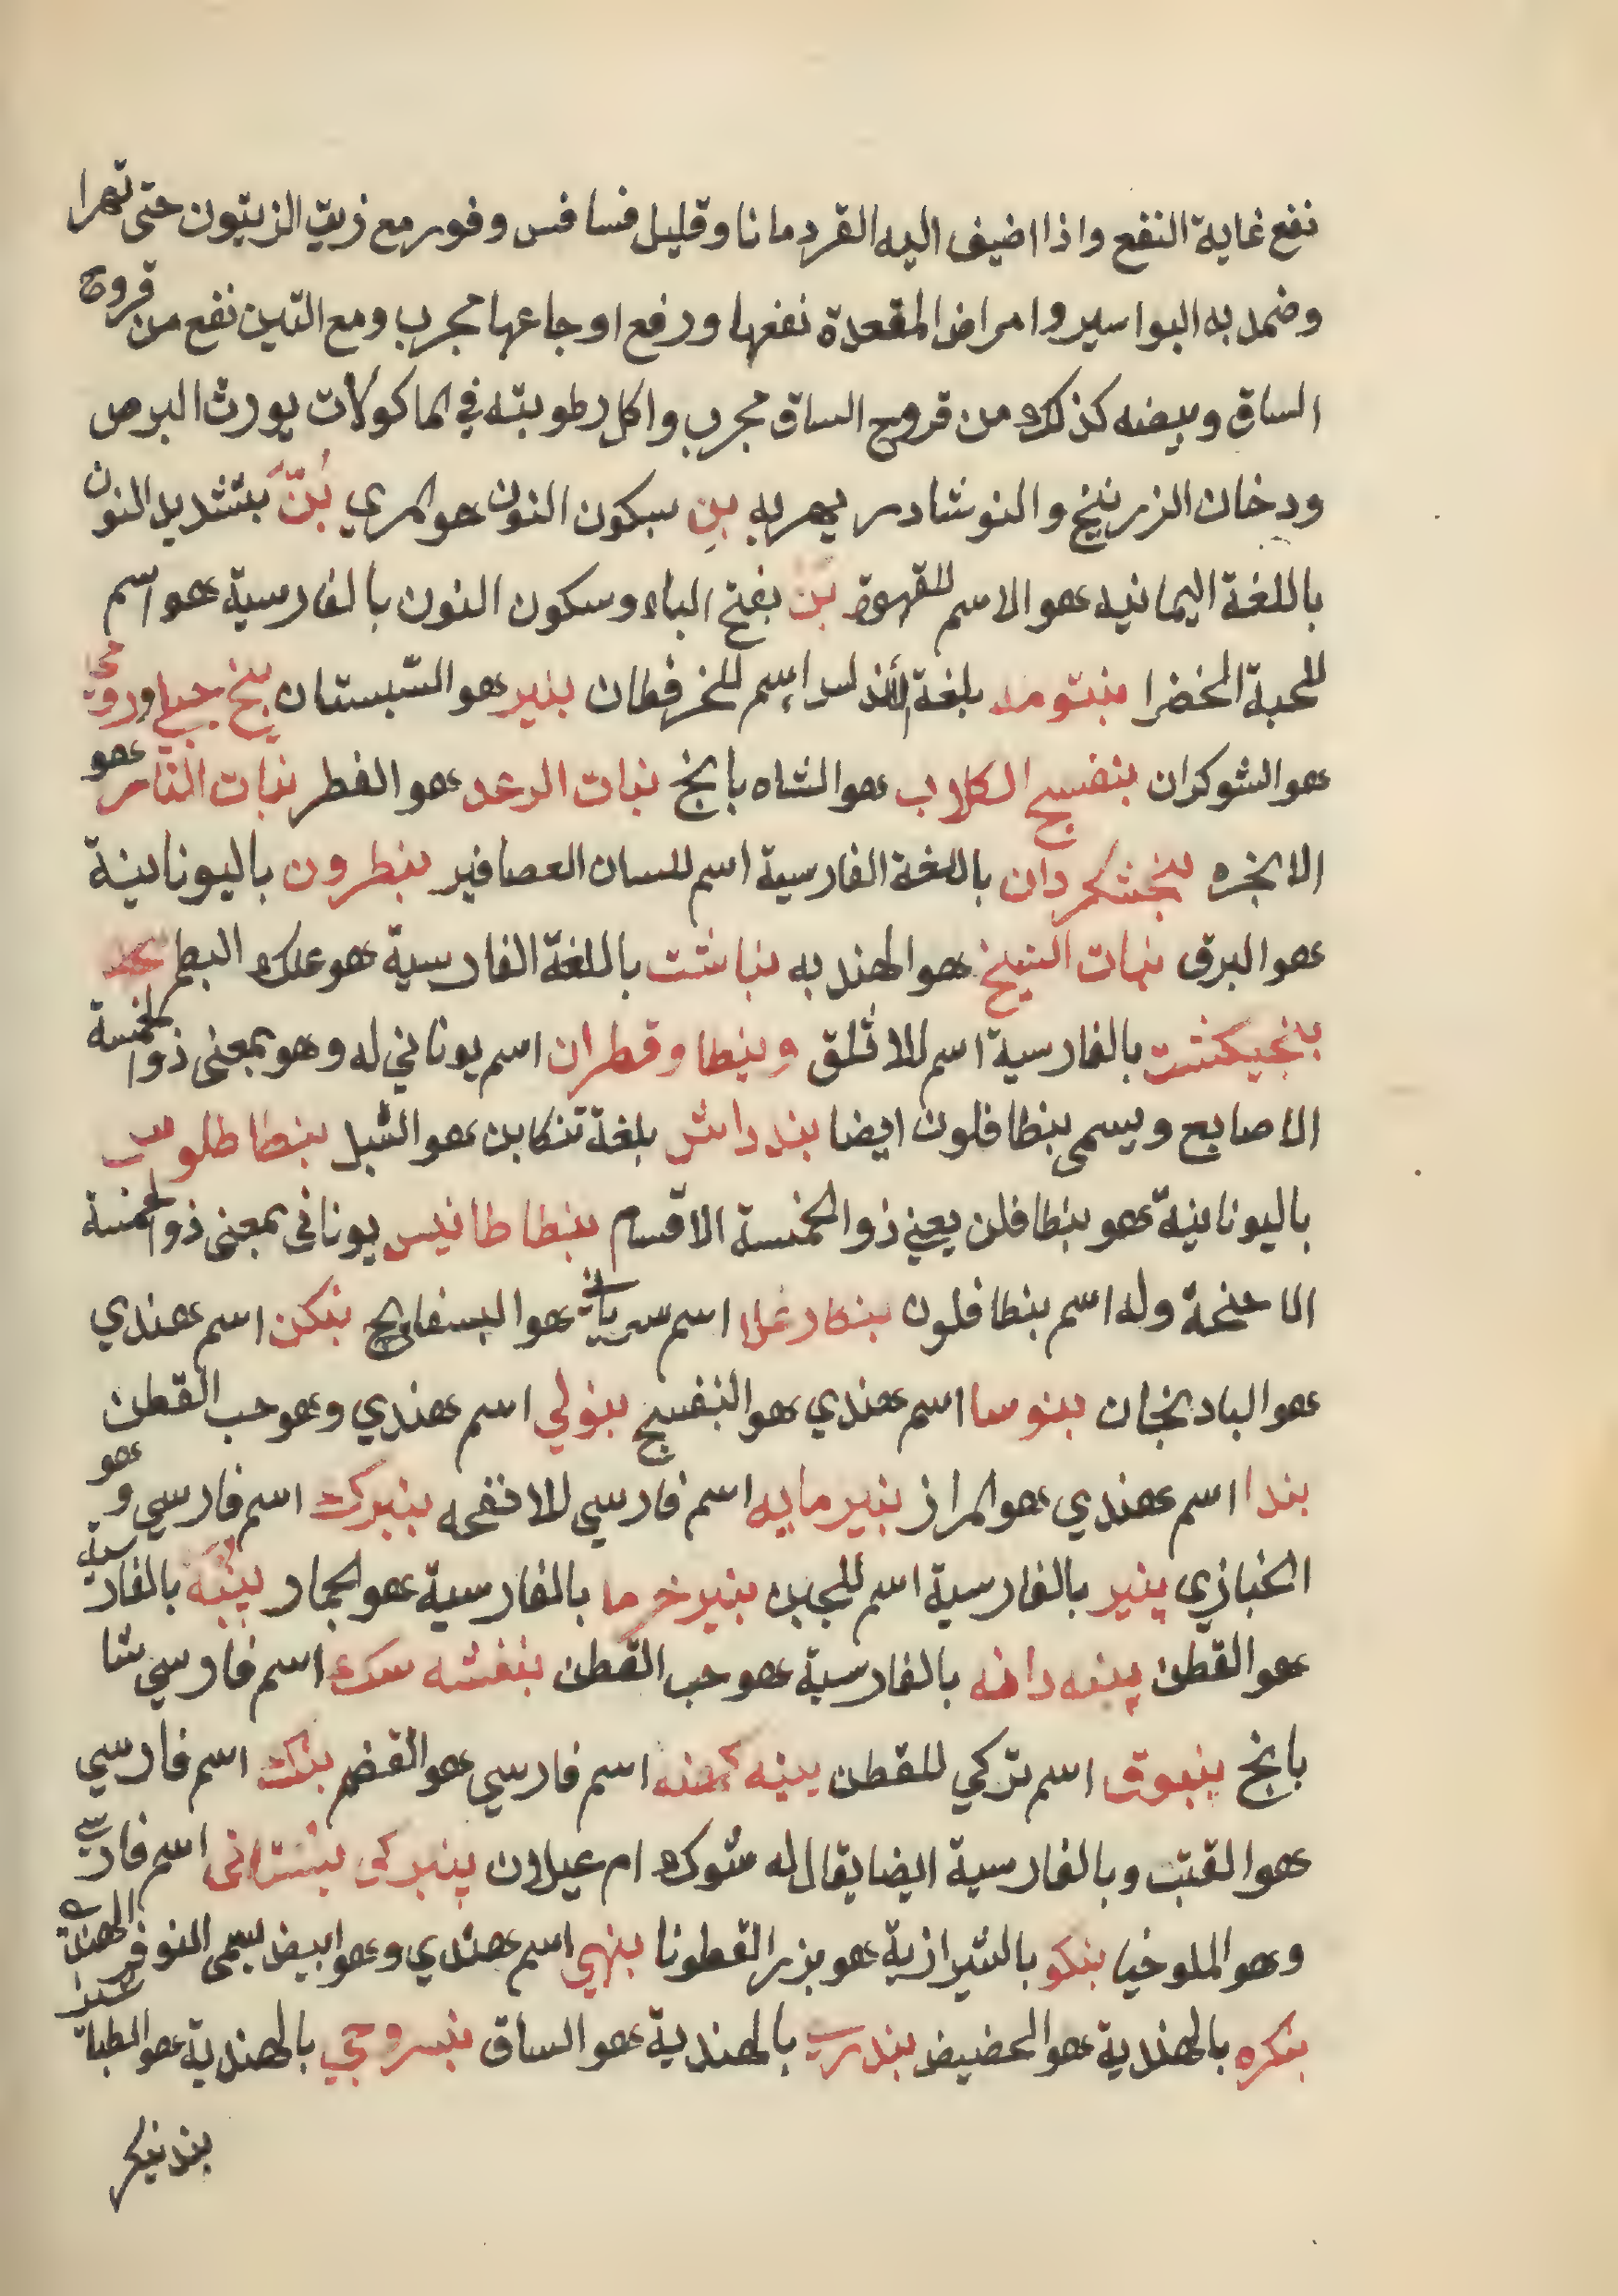 نفع غاية النفع واذا اضيف اليه القردمانا وقليل فسافس وفور مع زيت الزيتون حتى تهرا
وضمد به البواسير وامراض المقعدة نفعها ورفع اوجاعها مجرب ومع التين نفع من قروح
الساق وبيضه كذلك من قروح الساق مجرب واكل رطوبته في الماكولات يورث البرص
ودخان الزرنيخ والنوشادر يهربه بن بسكون النون هو المري بُنّ بتشديد النون
باللغة اليمانيه هو الاسم للقهوة بَنْ بفتح الباء وسكون النون بالفارسية هو اسم
للحبة الخضرا بنتومه بلغة الاندلس اسم للخرفطان بنير هو السبستان بنج جبلي ورومي
هو الشوكران بنفسج الكلاب هو الشاه بابخ نبات الرعد هو الفطر نبات النار هو
الانجره بنجشكردان باللغة الفارسية اسم للسان العصافير بنطرون باليونانية
هو البرق نبات الشيخ هو الهندبه بناشت باللغة الفارسية هو علك البطم
بنجيكشت بالفارسية اسم للاثلق وبنطاوقطران اسم يوناني له وهو بمعنى ذو الخمسة
الاصابع ويسمى بنطافلون ايضا بندداش بلغة تنكابن هو الشبل بنطاطلوس
باليونانية هو بنطافلن يعني ذو الخمسة الاقسام بنطاطانيس يونانى بمعنى ذو الخمسة
الاجنحة وله اسم بنطافلون بنكارغلا اسم سرياني هو البسفايج بنكن اسم هندي
هو البادنجان بنوسا اسم هندي هو البنفسج بنولي اسم هندي وهو حب القطن
بندا اسم هندي هو المراز بنيرمايه اسم فارسي للانفحه بنيرك اسم فارسي وهو
الخبازي پنير بالفارسية اسم للجبن بنيرخرما بالفارسية هو الجمار پنبَه بالفارسية
هو القطن پنبه دانه بالفارسية هو حب القطن بنفشه سك اسم فارسي شا
بابخ پنبوق اسم تركي للقطن پنبه كهنه اسم فارسي هو القضم بنكت اسم فارسي
هو القتب وبالفارسية ايضا يقال له شوك ام عيلون پنيركى بستانى اسم فارسي
وهو الملوخيا بنكو بالشيرازية هو بزر القطونا بنهي اسم هندي وهو ابيض يسمى النوفر الهندي
بنكره بالهندية هو الحضيض بندرب بالهندية هو الساق بنسروجي بالهندية هو الطبا
بندنيكر